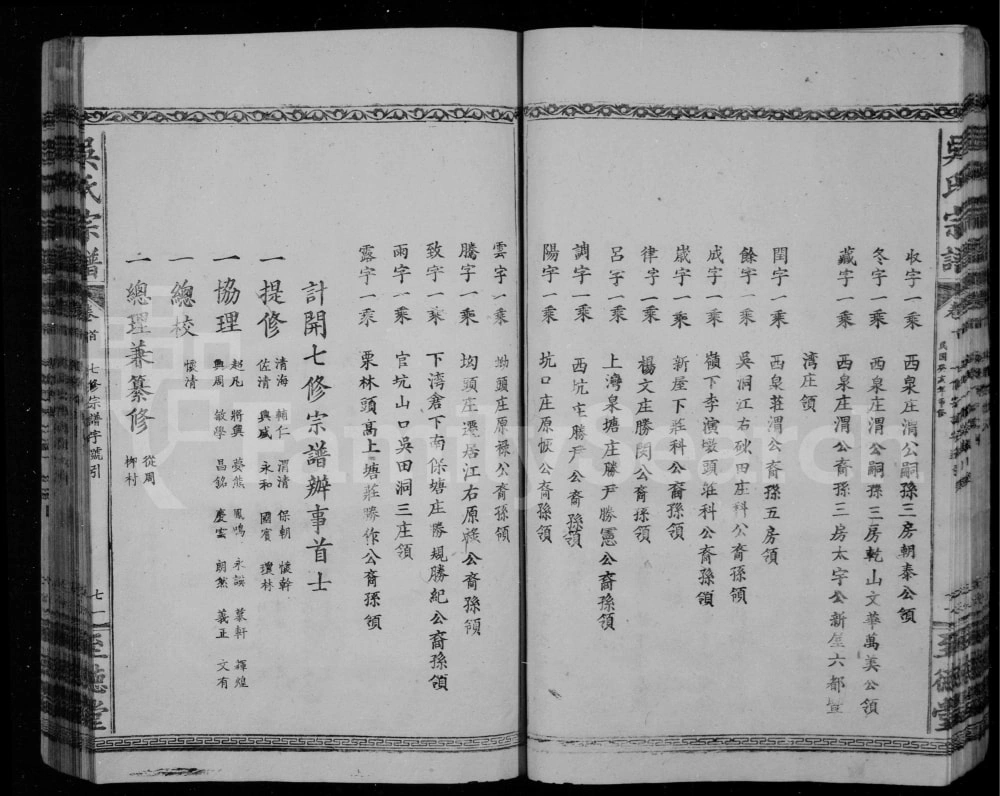 吳氏宗譜
收字一乘 西泉庄渭公嗣孫三房朝泰公領
冬字一乘 西泉庄渭公嗣孫三房乾山文華萬美公領
藏字一乘 西泉庄渭公裔孫三房太宇公新屋六都
湾庄領
閏字一乘 西泉莊渭公裔孫五房領
餘字一乘 吳洞江右砍田庄科公裔孫領
成字一乘 嶺下李演墩頭莊科公裔孫領
歲字一乘 新屋下莊科公裔孫領
律字一乘 楊文庄勝閔公裔孫領
呂字一乘 上灣泉塘庄勝尹勝憲公裔孫領
調字一乘 西坑庄勝尹公裔孫領
陽字一乘 坑口庄原恢公裔孫領
雲字一乘 坳頭庄原祿公裔孫領
騰字一乘 坳頭庄遷居江右原祿公裔孫領
致字一乘 下湾倉下南保塘庄勝規勝紀公裔孫領
雨字一乘 官坑山口吳田洞三庄領
露字一乘 栗林頭高上塘莊勝作公裔孫領
計開七修宗譜辦事首士
一提修 清海 輔仁 渭清 保朝 懷幹
佐清 興盛 永和 國賓 瓊林
一協理 起凡 將興 夢熊 鳳鳴 永謨 菉軒 輝煌
興周 敏學 昌銘 慶雲 朗然 義正 文有
一總校 懷清
一總理兼纂修 從周
柳村
吳氏宗譜 卷首 七修宗譜字號引 七 至德堂